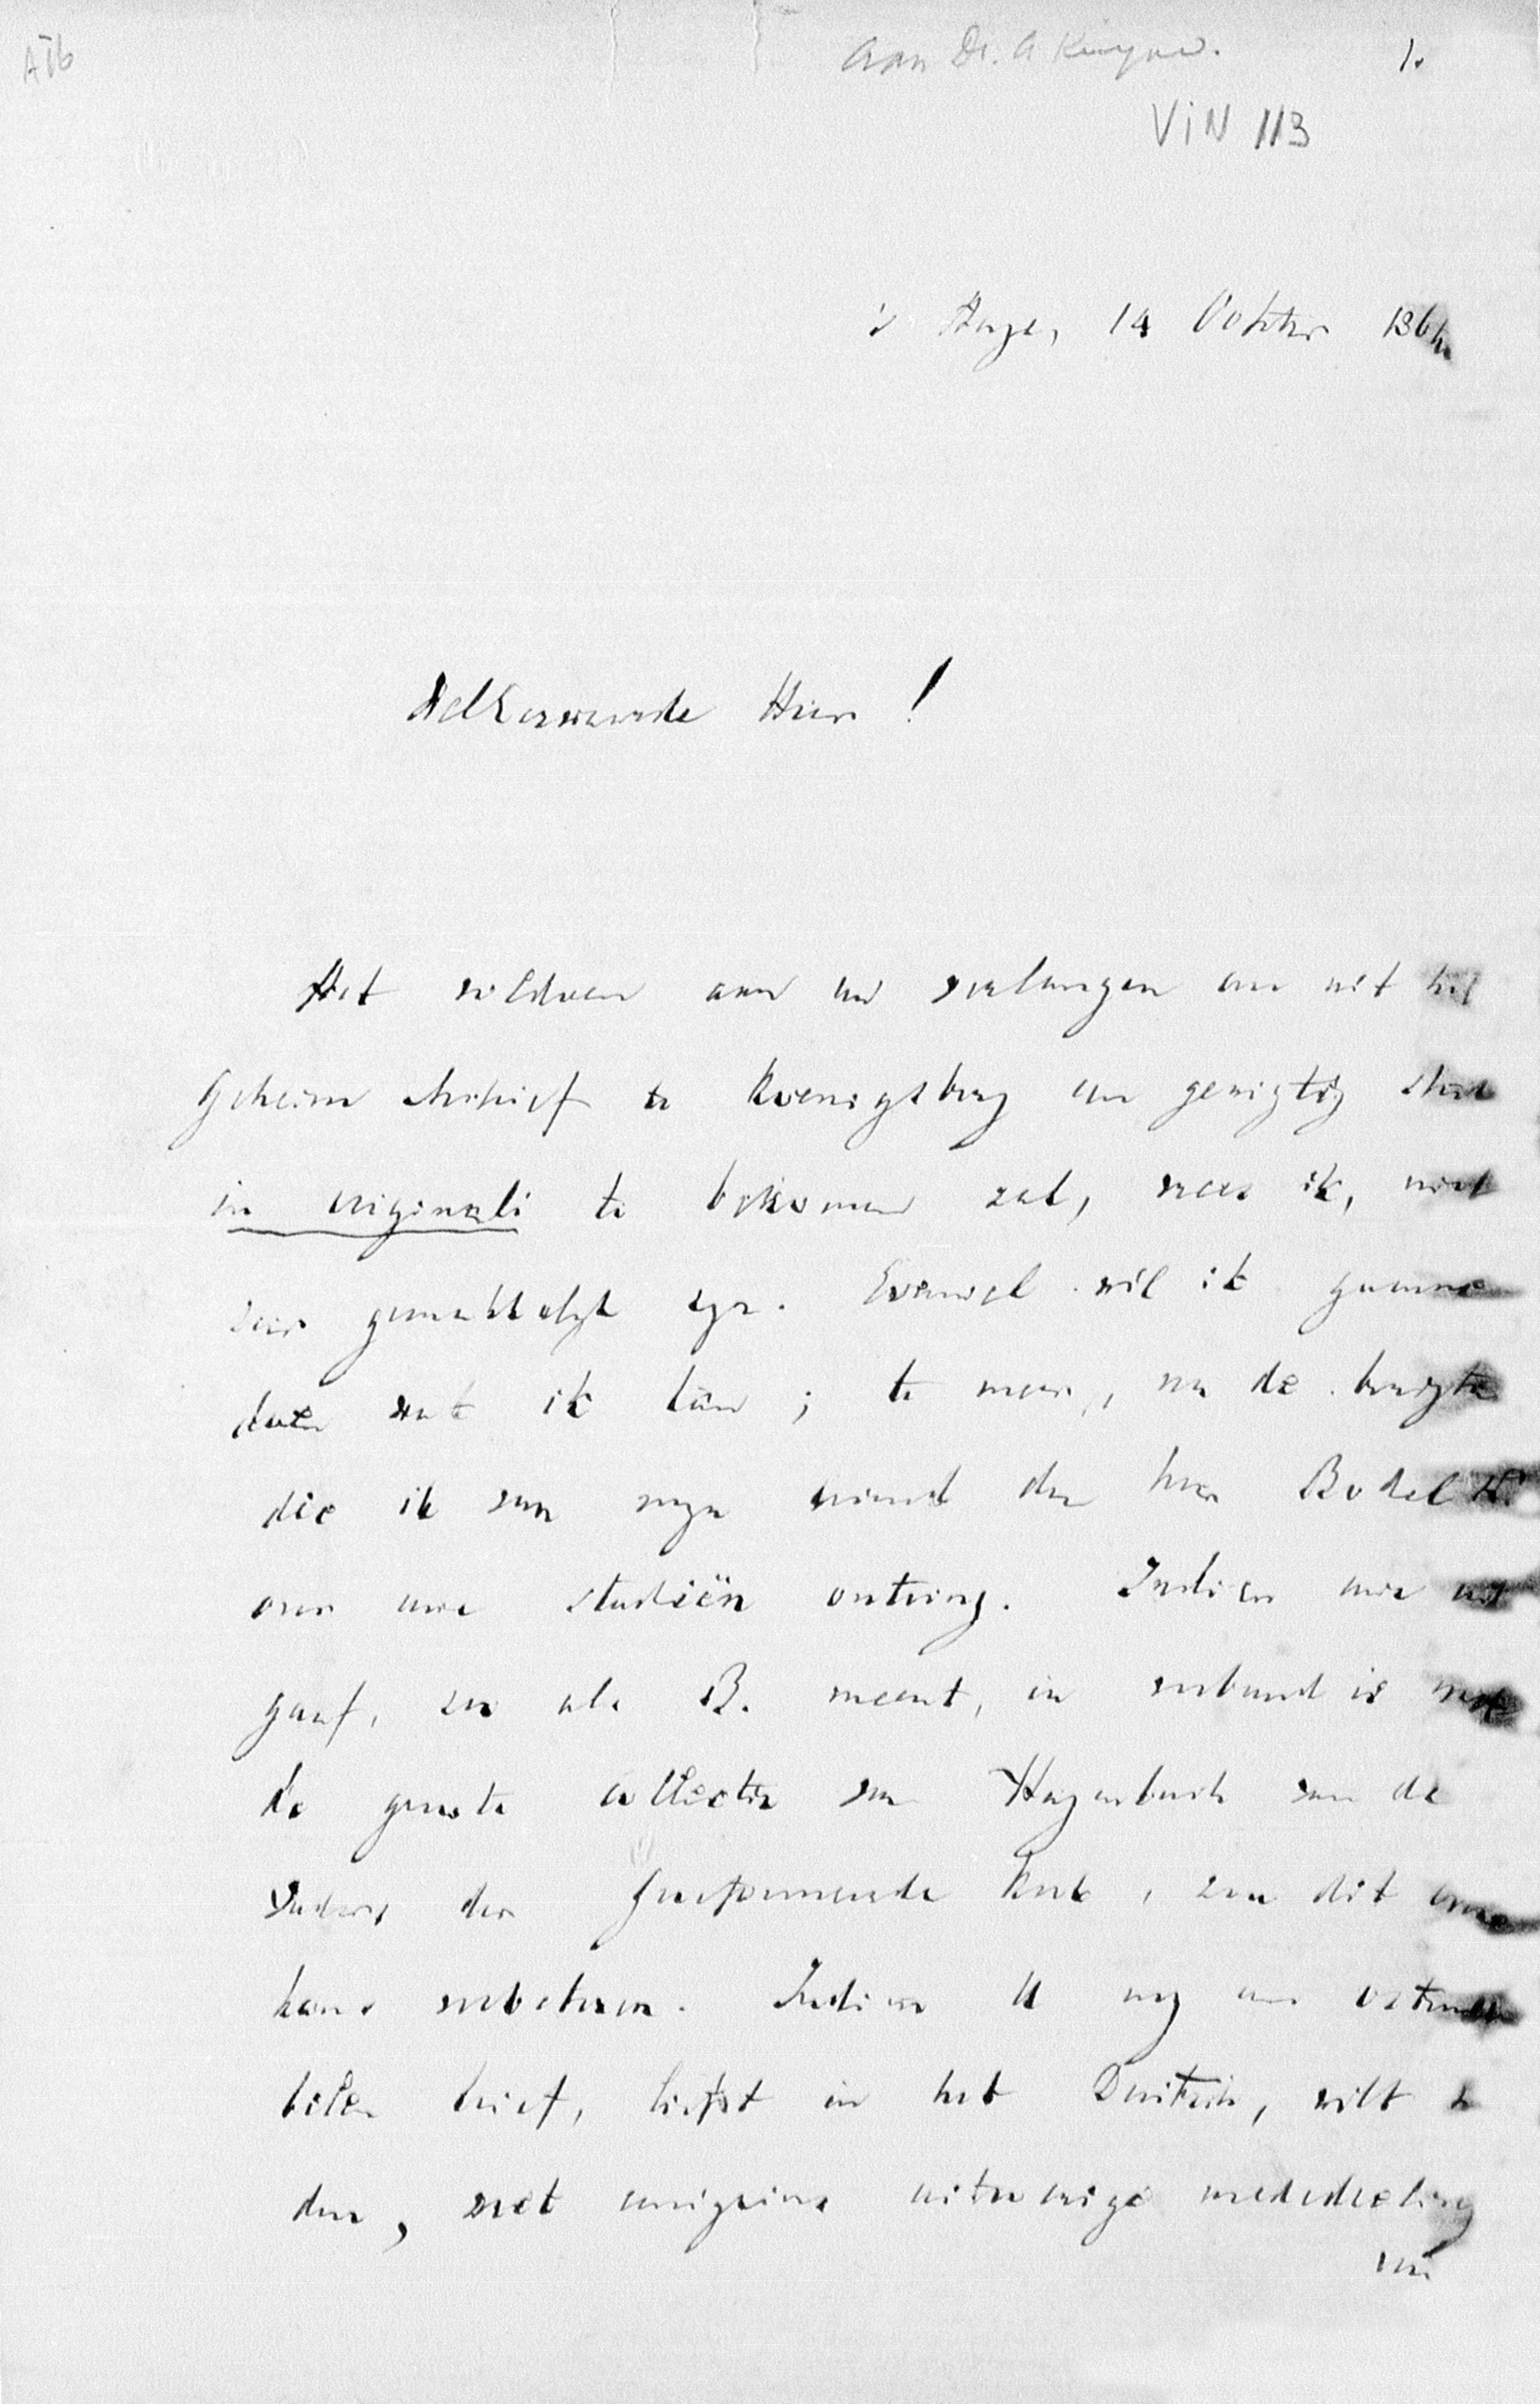 AIb
Aan Dr. A Kuyper.
1.
VIN 113
's Hage, 14 October 186
WelEerwaarde Heer!
Het voldoen aan uw verlangen om uit het
Geheim Archief te Koenigsberg een gewigtig stuk
in originali te bekomen zal, vrees ik, niet
zeer gemakkelijk zijn. Evenwel wil ik gaarne
doen wat ik kan; te meer, na de berigten
die ik van mijn vriend den heer Bodel
over uwe studiën ontving. Indien uwe uit
gaaf, zoo als B. meent, in verband is met
de groote collectie van Hagenbach van de
Vaders der Gereformeerde Kerk, zou dit onze
kans verbeteren. Indien U mij een ostensi
belen brief, liefst in het Duitsch, wilt zen
den, met eenigzins uitvoerige mededeeling
van